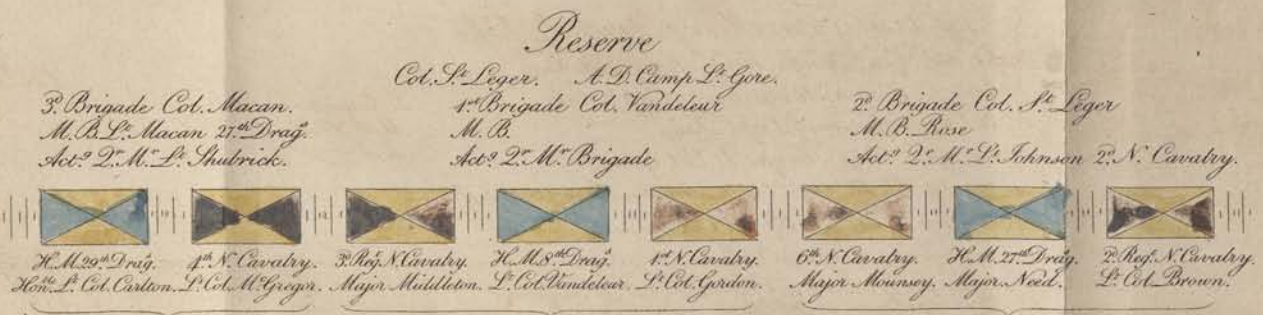 Reserve
Col. St. Leger. A. D. Camp Lt. Gore.
3d. Brigade Col. Macan.
M. B. Lt. Macan 27th Drags.
Actg. Qr. Mr. Lt. Shubrick.
1st Brigade Col. Vandeleur
M. B.
Actg. Qr. Mr. Brigade
2d. Brigade Col. St. Leger
M. B. Rose
Actg. Qr. Mr. Lt. Johnson 2d. N. Cavalry.
H. M. 29th Drag.
Honble. Lt. Col. Carlton.
4th N. Cavalry.
Lt. Col. McGregor.
3d. Reg. N. Cavalry.
Major Middleton.
H. M. 8th Drags.
Lt. Col. Vandeleur.
1st N. Cavalry.
Lt. Col. Gordon.
6th N. Cavalry.
Major Mounsey.
H. M. 27th Drag.
Major Need.
2d. Reg. N. Cavalry.
Lt. Col. Brown.